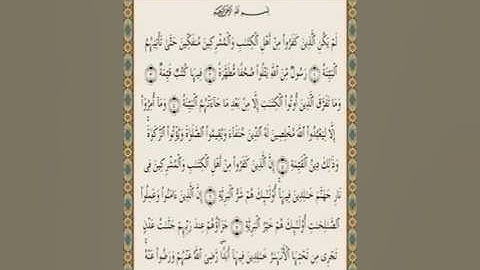 بِسْمِ ٱللَّهِ ٱلرَّحْمَٰنِ ٱلرَّحِيمِ
لَمْ يَكُنِ ٱلَّذِينَ كَفَرُوا۟ مِنْ أَهْلِ ٱلْكِتَٰبِ وَٱلْمُشْرِكِينَ مُنفَكِّينَ حَتَّىٰ تَأْتِيَهُمُ
ٱلْبَيِّنَةُ ١ رَسُولٌ مِّنَ ٱللَّهِ يَتْلُوا۟ صُحُفًا مُّطَهَّرَةً ٢ فِيهَا كُتُبٌ قَيِّمَةٌ ٣
وَمَا تَفَرَّقَ ٱلَّذِينَ أُوتُوا۟ ٱلْكِتَٰبَ إِلَّا مِنۢ بَعْدِ مَا جَآءَتْهُمُ ٱلْبَيِّنَةُ ٤ وَمَآ أُمِرُوٓا۟
إِلَّا لِيَعْبُدُوا۟ ٱللَّهَ مُخْلِصِينَ لَهُ ٱلدِّينَ حُنَفَآءَ وَيُقِيمُوا۟ ٱلصَّلَوٰةَ وَيُؤْتُوا۟ ٱلزَّكَوٰةَ ۚ
وَذَٰلِكَ دِينُ ٱلْقَيِّمَةِ ٥ إِنَّ ٱلَّذِينَ كَفَرُوا۟ مِنْ أَهْلِ ٱلْكِتَٰبِ وَٱلْمُشْرِكِينَ فِى
نَارِ جَهَنَّمَ خَٰلِدِينَ فِيهَآ ۚ أُو۟لَٰٓئِكَ هُمْ شَرُّ ٱلْبَرِيَّةِ ٦ إِنَّ ٱلَّذِينَ ءَامَنُوا۟ وَعَمِلُوا۟
ٱلصَّٰلِحَٰتِ أُو۟لَٰٓئِكَ هُمْ خَيْرُ ٱلْبَرِيَّةِ ٧ جَزَآؤُهُمْ عِندَ رَبِّهِمْ جَنَّٰتُ عَدْنٍ
تَجْرِى مِن تَحْتِهَا ٱلْأَنْهَٰرُ خَٰلِدِينَ فِيهَآ أَبَدًا ۖ رَّضِىَ ٱللَّهُ عَنْهُمْ وَرَضُوا۟ عَنْهُ ۚ